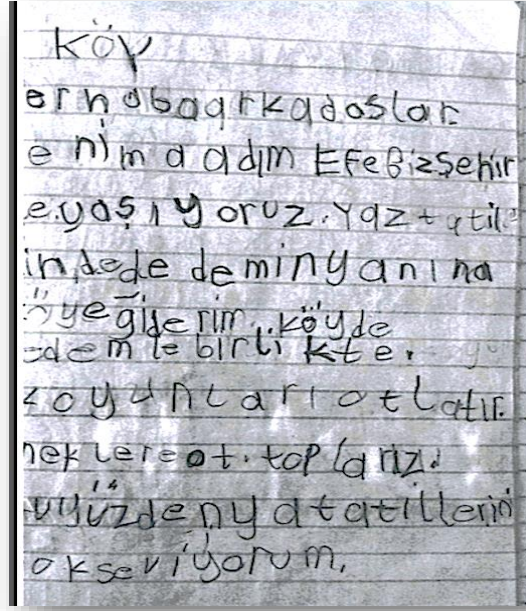 KÖY
erhabaarkadaslar.
enimaadım EfeBizşehir
eyaşıyoruz.Yaztatil
indedede deminyanına
öyegiderim.köyde
edemlebirlikte.
koyunlarıotlatır.
neklereot.toplarız.
uyüzdenyatatillerin
okseviyorum.